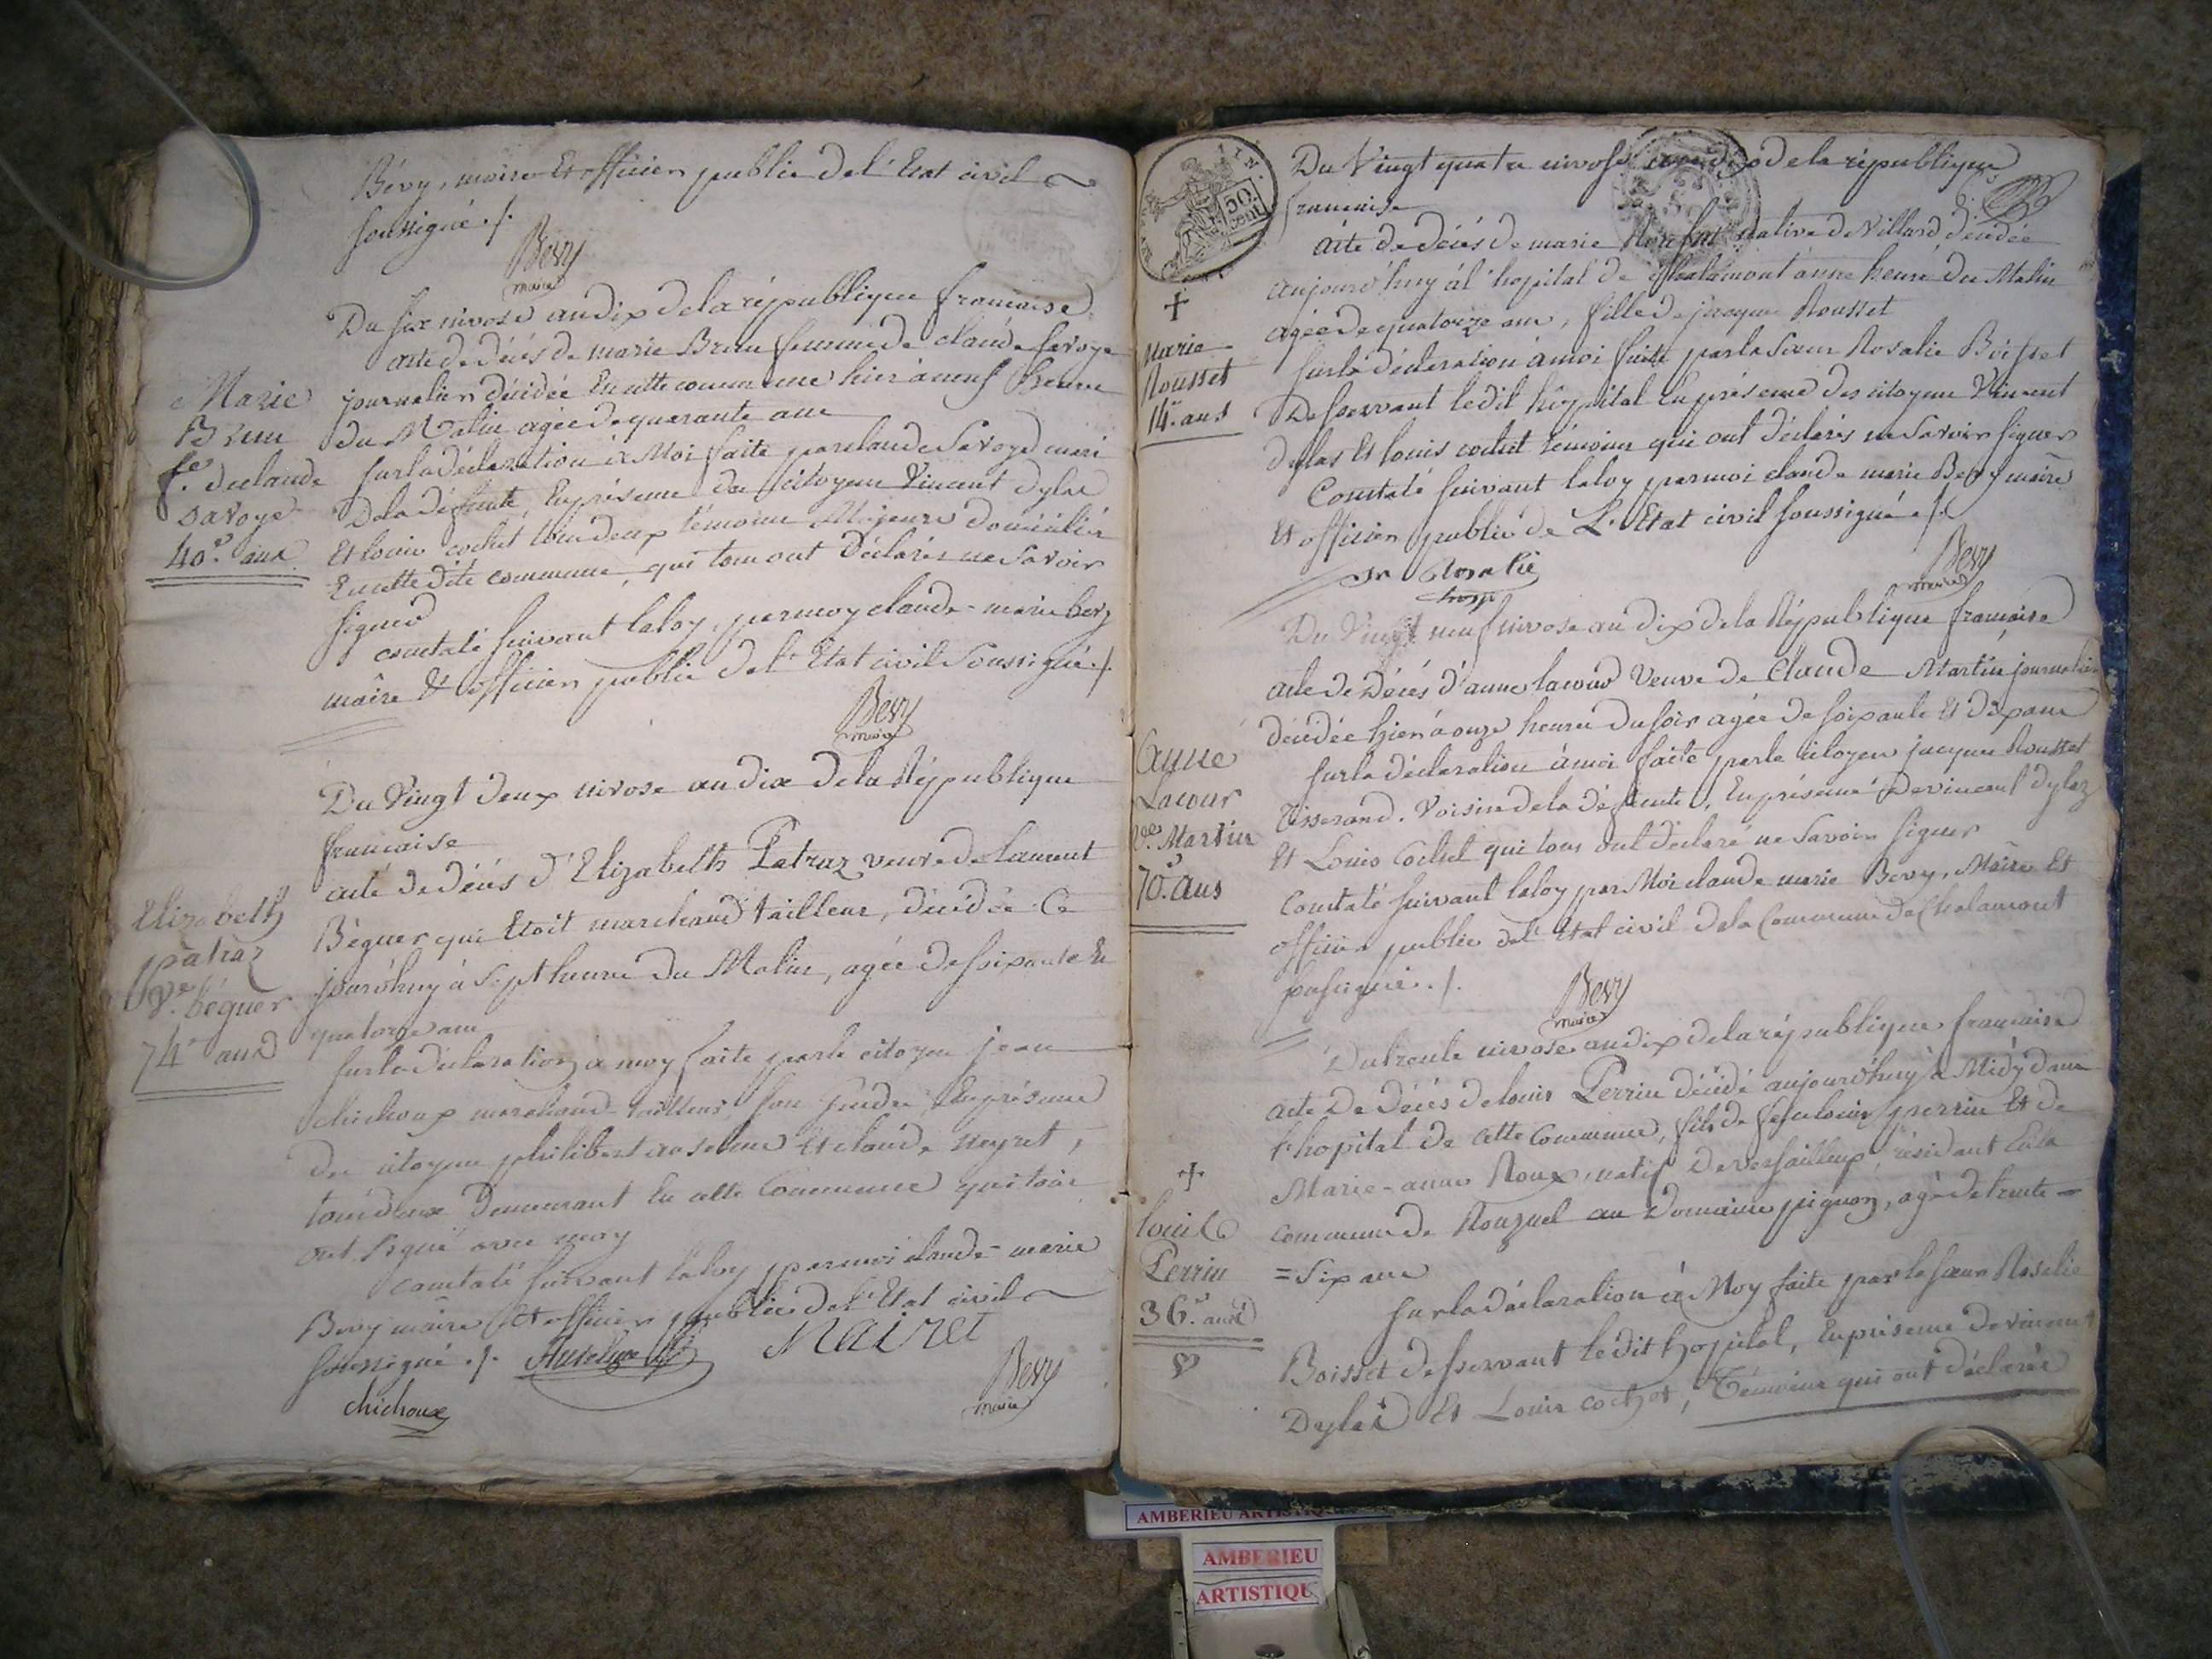 Bevy, maire Et officier public de l'Etat civil
soussigné ./.
Bevy
maire
Du six nivose an dix de la république francaise
acte de décés de marie Brun femme de claude savoye
journalier décédée En cette commune hier à neuf heures
du Matin agée de quarante ans
sur la déclaration à Moi faite par claude Savoye mari
De la défunte, En présence des citoyens Vincent dylas
Et louis cochet tous deux témoins Majeurs domiciliés
En cette dite commune, qui tous ont déclarés ne Savoir
signer
constaté suivant la loy, par moy claude-marie bevy
maire & officier public de l'Etat civil Soussigné ./.
Bevy
maire
Marie
Brun
fe. de claude
Savoye
40. ans
Du Vingt deux nivose an dix de la République
francaise
acte de décés d'Elizabeth Patraz veuve de laurent
Béguer qui Etoit marchand tailleur, décédée Ce
jourd'huy à sept heures du Matin, agée de soixante Et
quatorze ans
sur la déclaration à moy faite par le citoyen jean
chichoux marchand tailleur, son gendre, En présence
des citoyens philibert anselme Et claude neyret,
tous deux Demeurant En cette Commune qui tous
ont signé avec moy
constaté suivant la loy par moi claude-marie
Bevy maire Et officier public de l'Etat civil
soussigné ./. Anselme Nairet
chichoux
Bevy
maire
Elizabeth
patraz
Ve. béguer
74 ans
50.
cent
Du Vingt quatre nivose an dix de la république
francaise
acte de décés de marie Rousset native de Villard décédée
aujourd'huy à l'hopital de Chalamont à une heure du Matin
agée de quatorze ans, fille de jacques Rousset
sur la déclaration à moi faite par la Sœur Rosalie Boisset
Desservant ledit hôpital En présence des citoyens Vincent
dylas Et louis cochet témoins qui ont déclarés ne Savoir signer
Constaté suivant la loy par moi claude marie Bevy maire
Et officier public de L'Etat civil soussigné ./.
Sr Rosalie
hosp
Bevy
maire
Marie
Rousset
14. ans
Du Vingt neuf nivose an dix de la République française
acte de Décés d'anne lacour Veuve de Claude Martin journalier
décédée hier à onze heures du soir agée de soixante Et dix ans
sur la déclaration à moi faite par le citoyen jacques Rousset
tisserand. Voisin de la défunte, En présence de vincent dylas
Et Louis Cochet qui tous ont déclaré ne Savoir signer
Constaté suivant la loy par Moi claude marie Bevy, Maire Et
officier public de l'Etat civil de la Commune de Chalamont
soussigné ./.
Bevy
maire
Anne
Lacour
Ve. Martin
70. ans
Du trente nivose an dix de la république francaise
acte De Décés de louis Perrin décédé aujourd'huy à Midy dans
l'hopital de cette Commune, fils de feu louis perrin Et de
Marie-anne Roux, natif de versailleux, résidant En la
commune de Ronzuel au Domaine pignon, agé de trente
=Six ans
sur la déclaration à Moy faite par la sœur Rosalie
Boisset desservant ledit hopital, En présence de vincent
Dylas Et Louis cochet, Témoins qui ont déclarés
louis
Perrin
36. ans
AMBERIEU ARTISTIQUE
AMBERIEU
ARTISTIQU